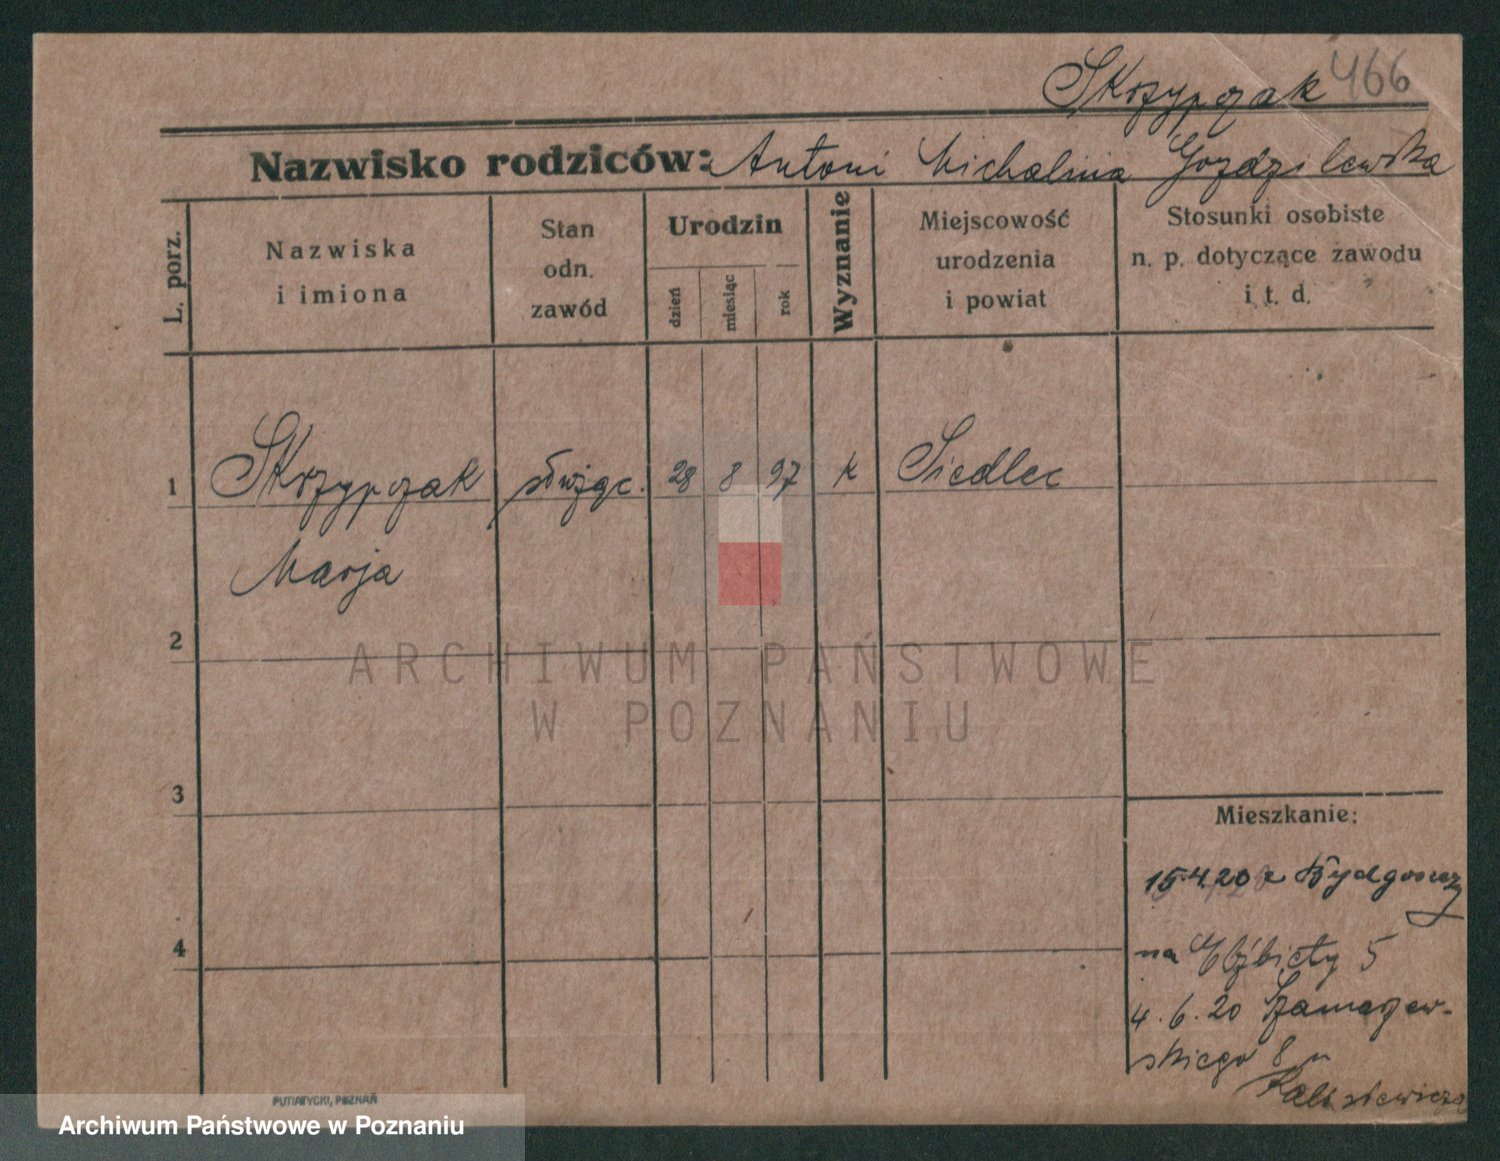 Skrzypczak 466
Nazwisko rodziców: Antoni Michalina
L. porz.
Nazwiska
i imiona
Stan
odn.
zawód
Urodzin
dzień
miesiąc
rok
Wyznanie
Miejscowość
urodzenia
i powiat
Stosunki osobiste
n. p. dotyczące zawodu
i t. d.
1 Skrzypczak służąc. 28 8 97 k Siedlec
Marja
2
3
4
Mieszkanie:
15.4.20 z Bydgoszczy
na Elżbiety 5
4.6.20 Szamarzew-
skiego 8 u
PUTIATYCKI, POZNAŃ
ARCHIWUM PAŃSTWOWE
W POZNANIU
Archiwum Państwowe w Poznaniu